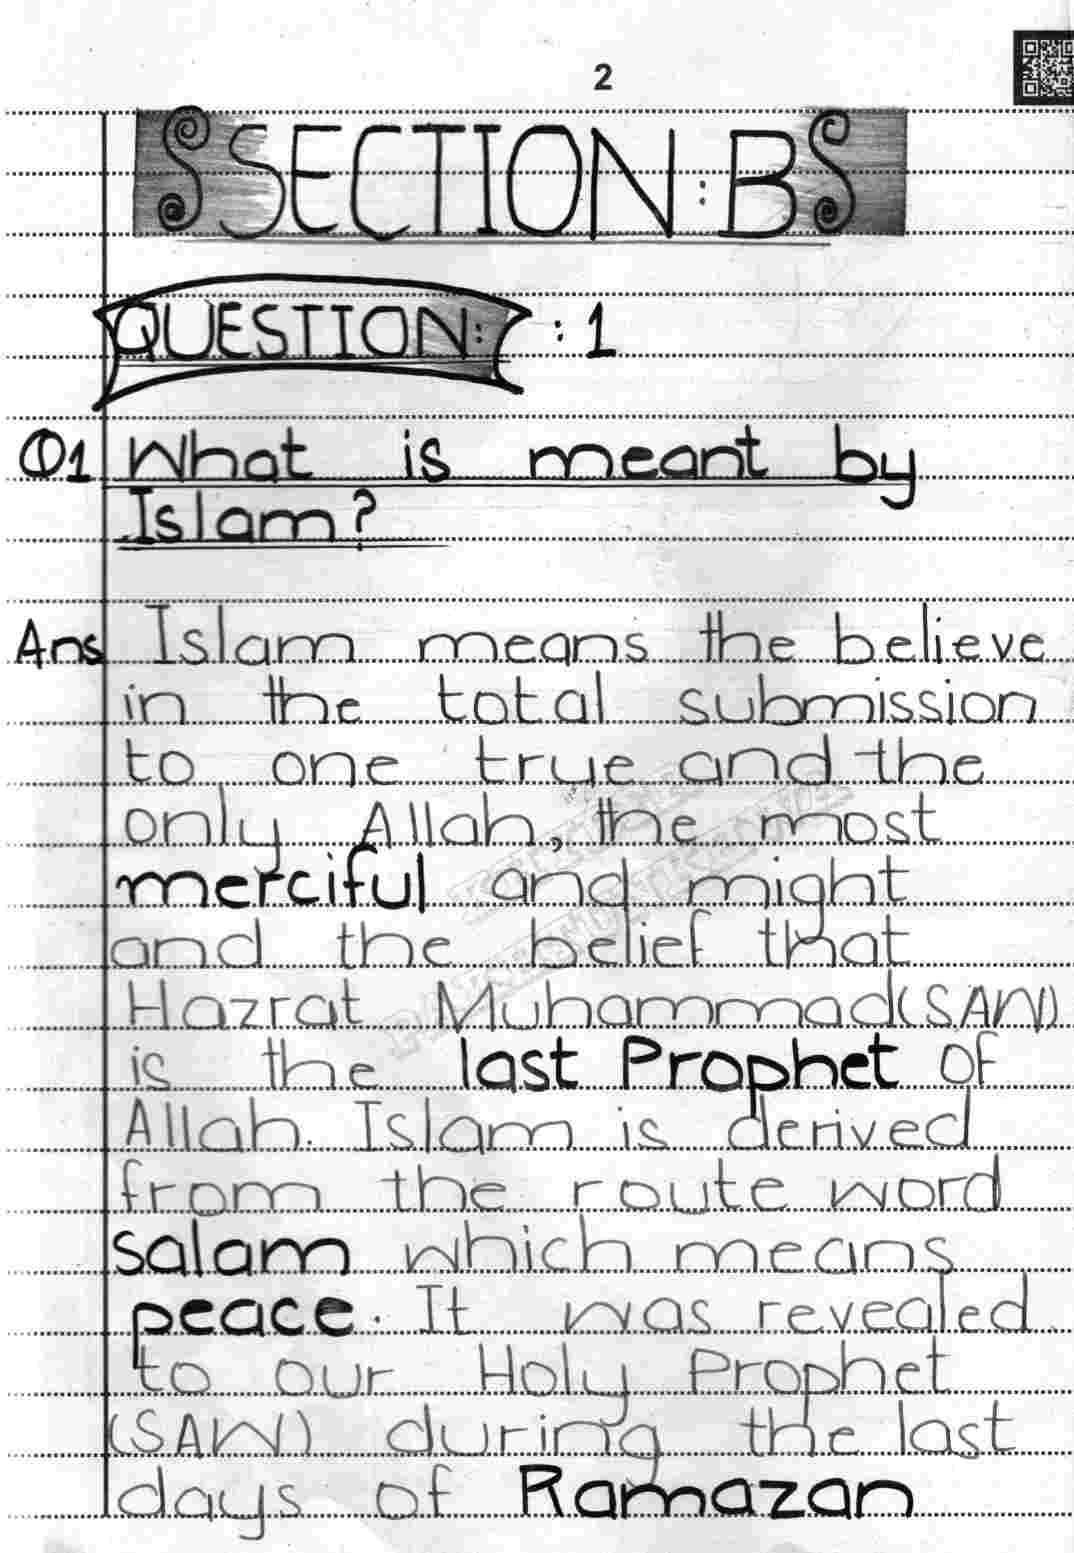 2
SECTION: B
QUESTION: : 1
Q1 What is meant by
Islam?
Ans Islam means the believe
in the total submission
to one true and the
only Allah, the most
merciful and might
and the belief that
Hazrat Muhammad(SAW)
is the last Prophet of
Allah. Islam is derived
from the route word
salam which means
peace. It was revealed
to our Holy Prophet
(SAW) during the last
days of Ramazan